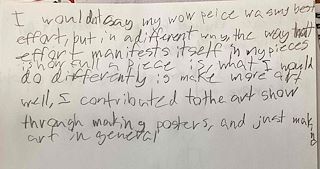 I wouldn't say my wow peice was my best
effort, but in a different way, the way that
effort manifests itself in my pieces
is how full a piece is, what I would
do differently is make more art
well, I contributed to the art show
through making posters, and just making
art in general